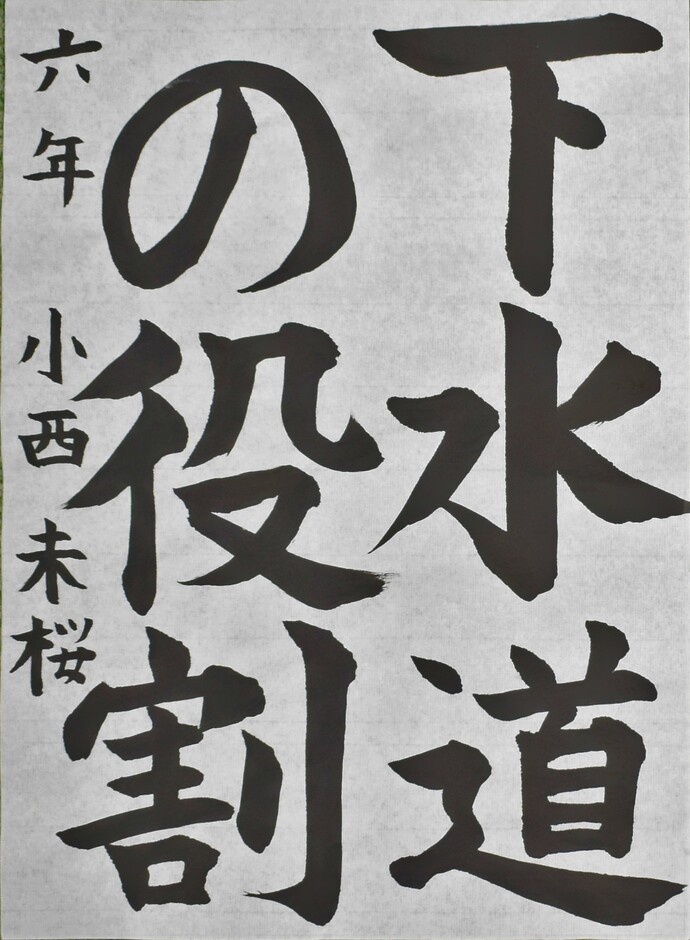 下水道
の役割
六年 小西 未桜